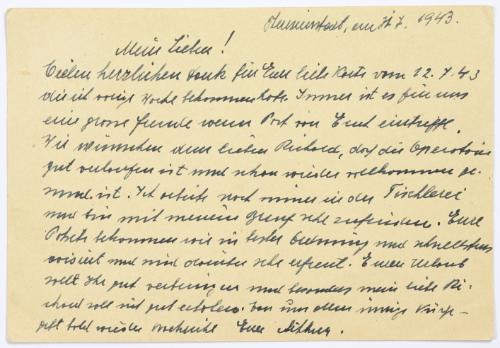 Theresienstadt, am 31.7. 1943.
Meine Lieben!
Vielen herzlichen Dank für Eure liebe Karte vom 12.7.43
die ich vorige Woche bekommen habe. Immer ist es für uns
eine grosse Freude wenn Post von Euch eintrifft.
Wir wünschen dem lieben Richard, daß die Operation
gut verlaufen ist und schon wieder vollkommen ge-
sund ist. Ich arbeite noch immer in der Tischlerei
und bin mit meinem Beruf sehr zufrieden. Eure
Pakete bekommen wir in bester Ordnung und schnellstens
avisiert und sind darüber sehr erfreut. Euren Urlaub
sollt Ihr gut verbringen und besonders mein liebe Ri-
chard soll sich gut erholen. Von uns allen innige Küsse
bald wieder Eure